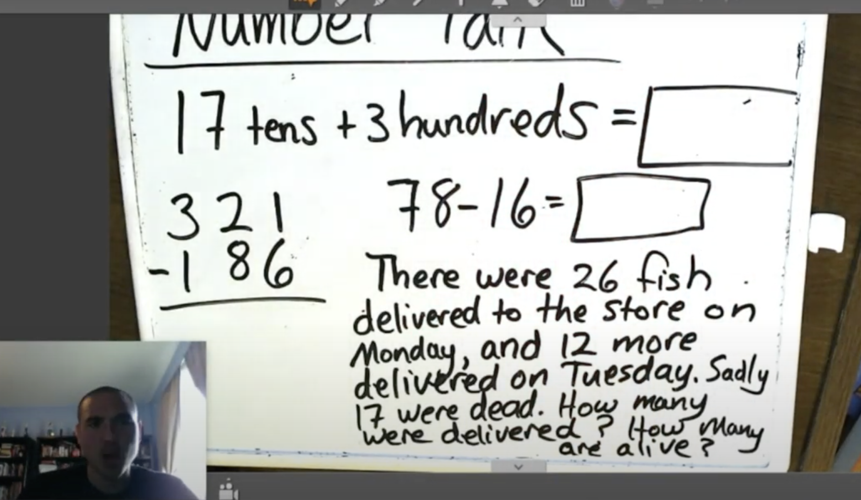 Number Talk
17 tens + 3 hundreds =
321
-186
78-16=
There were 26 fish
delivered to the store on
Monday, and 12 more
delivered on Tuesday. Sadly
17 were dead. How many
were delivered? How Many
are alive?